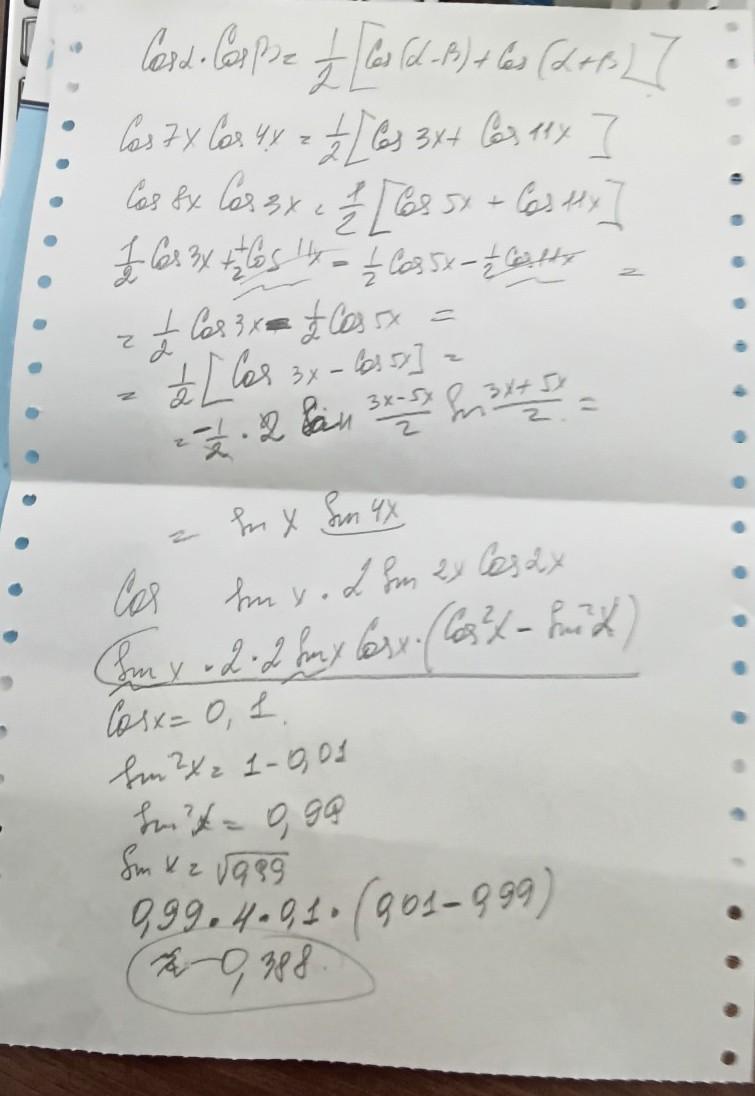 Cosα·Cosβ= 1/2 [Cos(α-β)+Cos(α+β)]
Cos 7x Cos 4x = 1/2 [Cos 3x+ Cos 11x ]
Cos 8x Cos 3x = 1/2 [Cos 5x + Cos 11x]
1/2 Cos 3x + 1/2 Cos 11x - 1/2 Cos 5x - 1/2 Cos 11x =
= 1/2 Cos 3x - 1/2 Cos 5x =
= 1/2 [Cos 3x - Cos 5x] =
= -1/2 · 2 Sin (3x-5x)/2 Sin (3x+5x)/2 =
= Sin x Sin 4x
Cos Sin x · 2 Sin 2x Cos 2x
Sin x · 2 · 2 Sin x Cos x · (Cos²x - Sin²x)
Cosx= 0,1.
Sin²x = 1-0,01
Sin²x = 0,99
Sin x = √0,99
0,99·4·0,1·(0,01-0,99)
≈ -0,388.